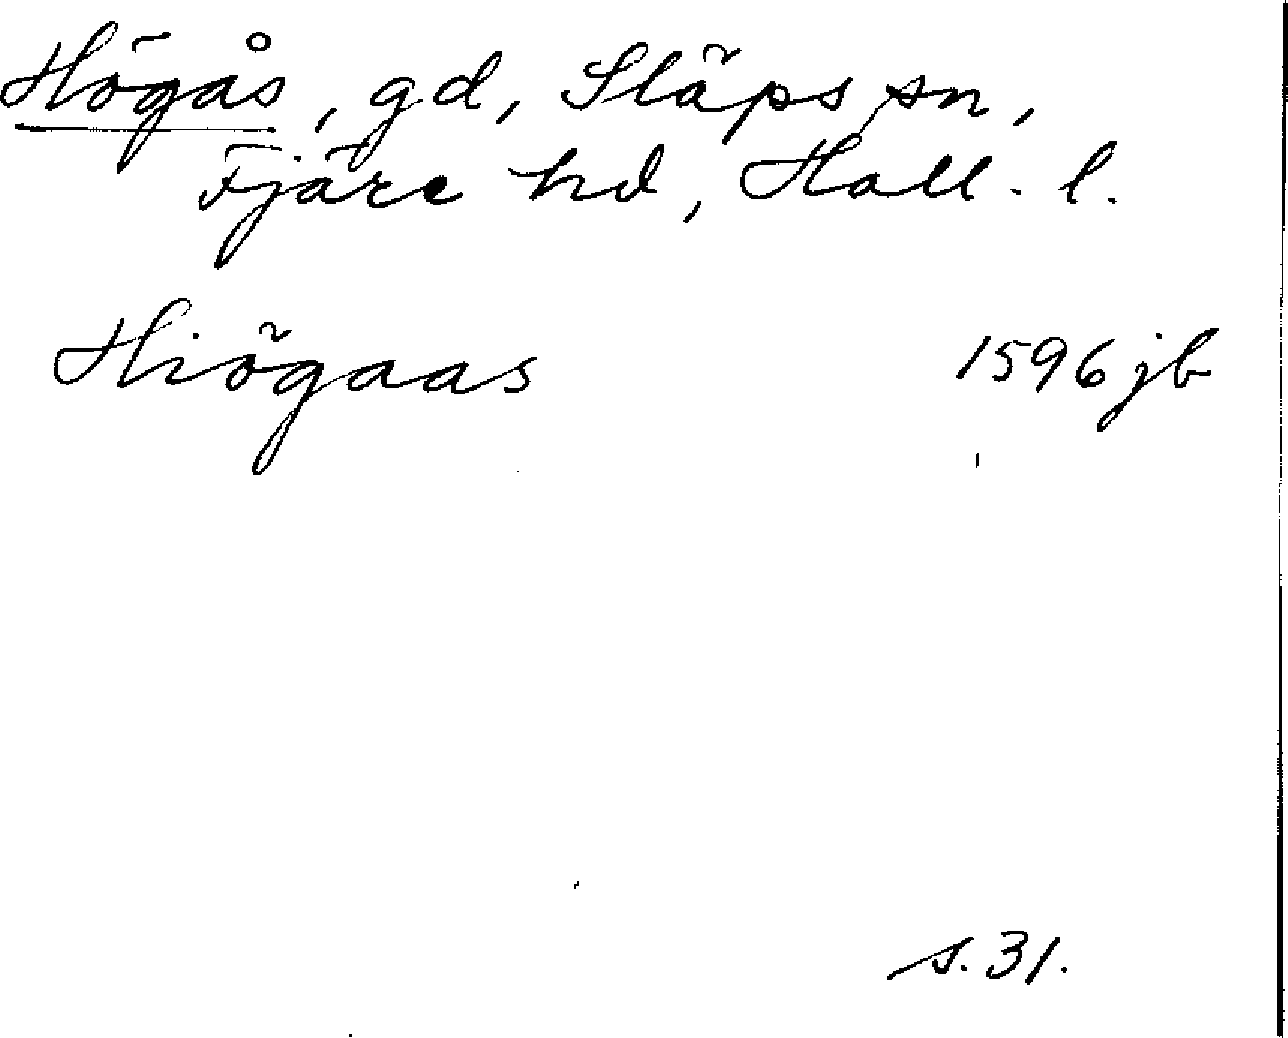 Högås, gd, Släps sn,
Fjäre hd, Hall. l.
Hiögaas 1596 jb
s. 31.